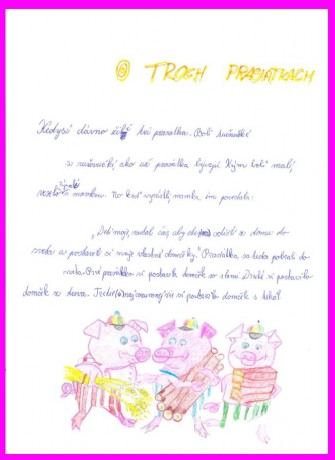 O TROCH PRASIATKACH
Kedysi dávno žili tri prasiatka. Boli ružovučké
a ružovučké, ako už prasiatka bývajú. Kým boli malé,
s mamkou. No keď vyrástli mamka im povedala:
„Deti moje, nadal čas, aby odišli z domu do
sveta a postavili si svoje vlastné domčeky." Prasiatka sa teda pobrali do
sveta. Prvé prasiatko si postavilo domček zo slamy. Druhé si postavilo
domček z dreva. Tretie si postavilo domček z tehál.